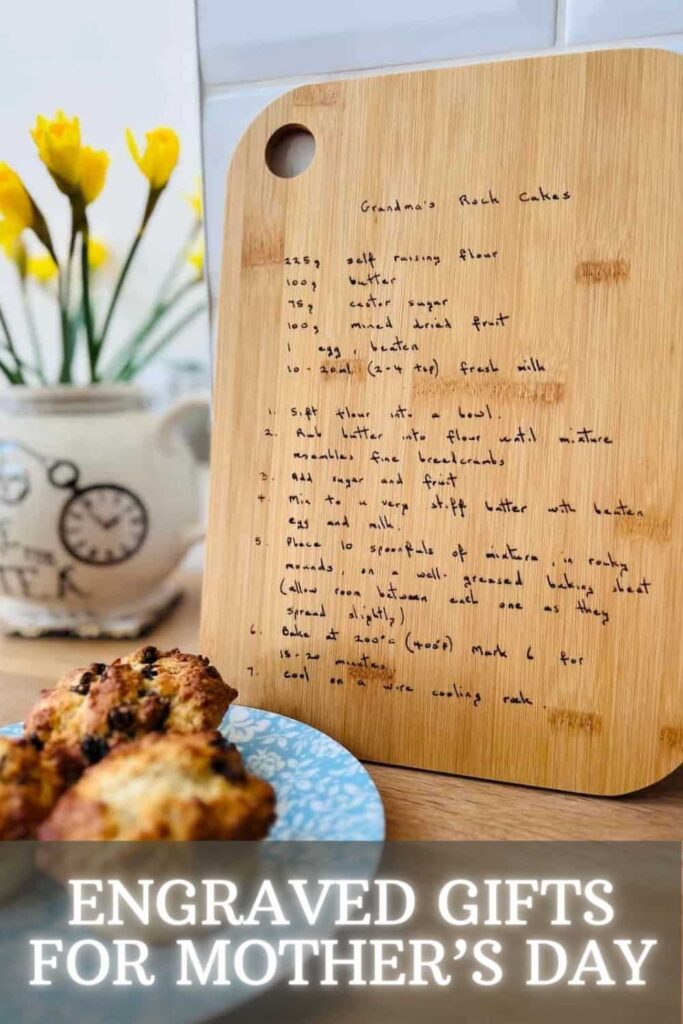 Grandma's Rock Cakes
225g self raising flour
100g butter
75g castor sugar
100g mixed dried fruit
1 egg, beaten
10 - 20ml (2-4 tsp) fresh milk
1. Sift flour into a bowl.
2. Rub butter into flour until mixture
resembles fine breadcrumbs
3. Add sugar and fruit
4. Mix to a very stiff batter with beaten
egg and milk.
5. Place 10 spoonfuls of mixture, in rocky
mounds, on a well-greased baking sheet
(allow room between each one as they
spread slightly)
6. Bake at 200°c (400°F) Mark 6 for
15-20 minutes
7. Cool on a wire cooling rack.
ENGRAVED GIFTS
FOR MOTHER'S DAY